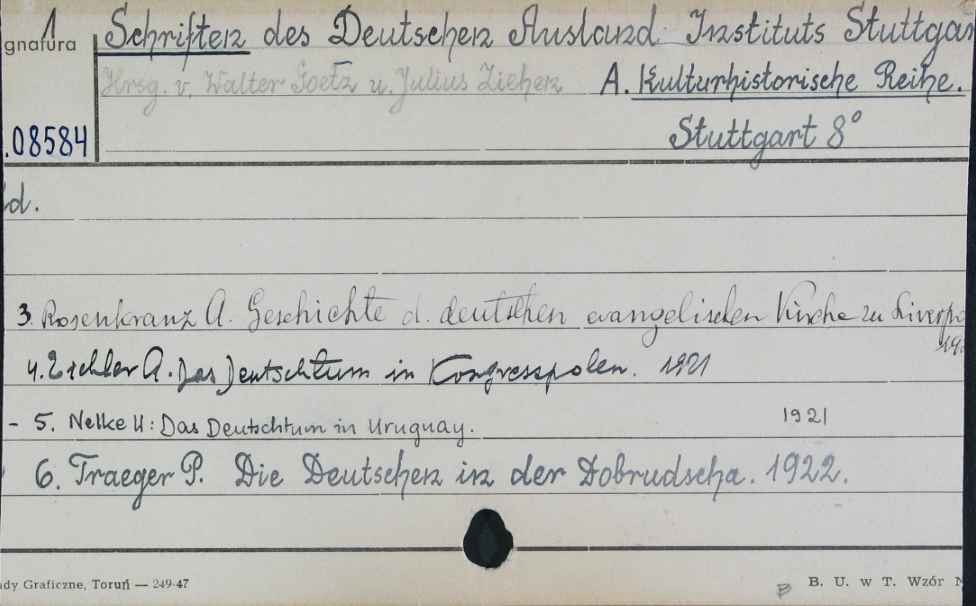 1 Schriften des Deutschen Ausland Instituts Stuttgar
gnatura
Hrsg. v. Walter Goetz u. Julius Ziehen A. Kulturhistorische Reihe.
.08584 Stuttgart 8°
d.
3. Rosenkranz A. Geschichte d. deutschen evangelischen Kirche zu Liverpo
19
4. Eichler A. Das Deutschtum in Kongresspolen. 1921
- 5. Nelke W: Das Deutschtum in Uruguay. 1921
6. Traeger P. Die Deutschen in der Dobrudscha. 1922.
ady Graficzne, Toruń — 249-47
B. U. w T. Wzór N